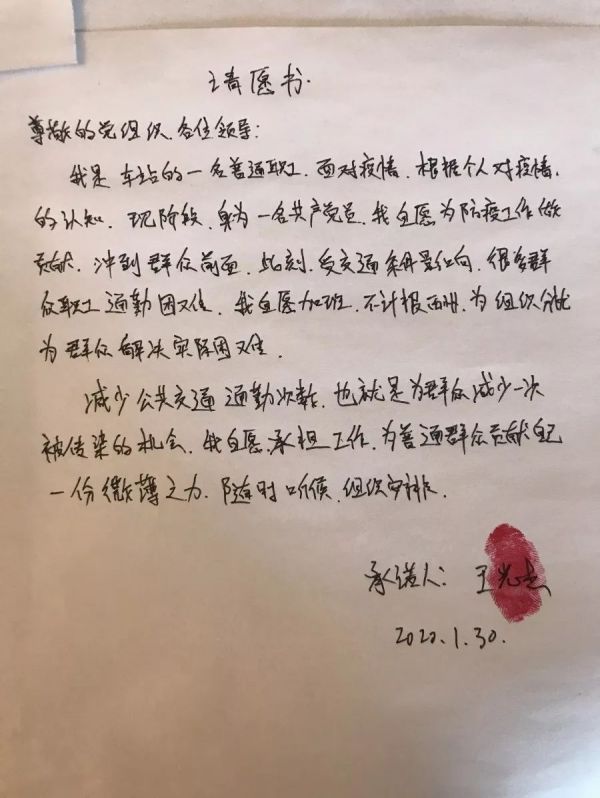 请愿书.
尊敬的党组织.各位领导:
我是车站的一名普通职工.面对疫情.根据个人对疫情.
的认知.现阶段.身为一名共产党员.我自愿为防疫工作做
贡献.冲到群众前面.此刻.受交通条件影响.很多群
众职工通勤困难.我自愿加班.不计报酬.为组织分忧
为群众解决实际困难.
减少公共交通通勤次数.也就是为群众减少一次
被传染的机会.我自愿.承担工作.为普通群众贡献自己
一份微薄之力.随时听候.组织安排.
承诺人:王光
2020.1.30.